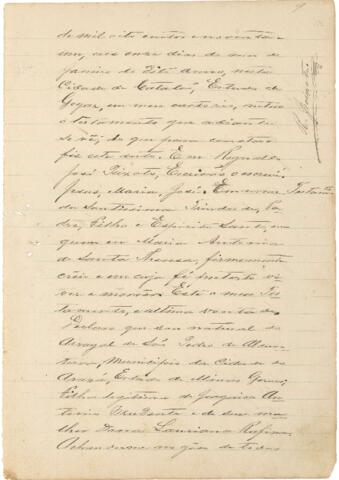 de mil oito centos e noventa e
um, aos onze dias do mez de
Janeiro do dito anno, nesta
Cidade de Catalão, Estado de
Goyaz, em meu cartorio, autuo
o testamento que adiante
se vê; do que para constar
fiz este auto. E eu
José Peixoto, Escrivão o escrevi.
Jesus, Maria, José. Em nome Testamto
da Santissima Trindade, Pa-
dre, Filho e Espirito Santo, em
quem eu Maria Antonia
de Santa Thereza, firmemente
creio e em cuja fé protesto vi-
ver e morrer. Este o meu Tes-
tamento, e ultima vontade.
Declaro que sou natural do
Arrayal de São Pedro de Alcan-
tara, Municipio da Cidade do
Araxá, Estado de Minas Geraes,
filha legitima de Joaquim An-
tonio Prudente e de sua mu-
lher Dona Lauriana Rufina.
Achando-me em gozo de todas